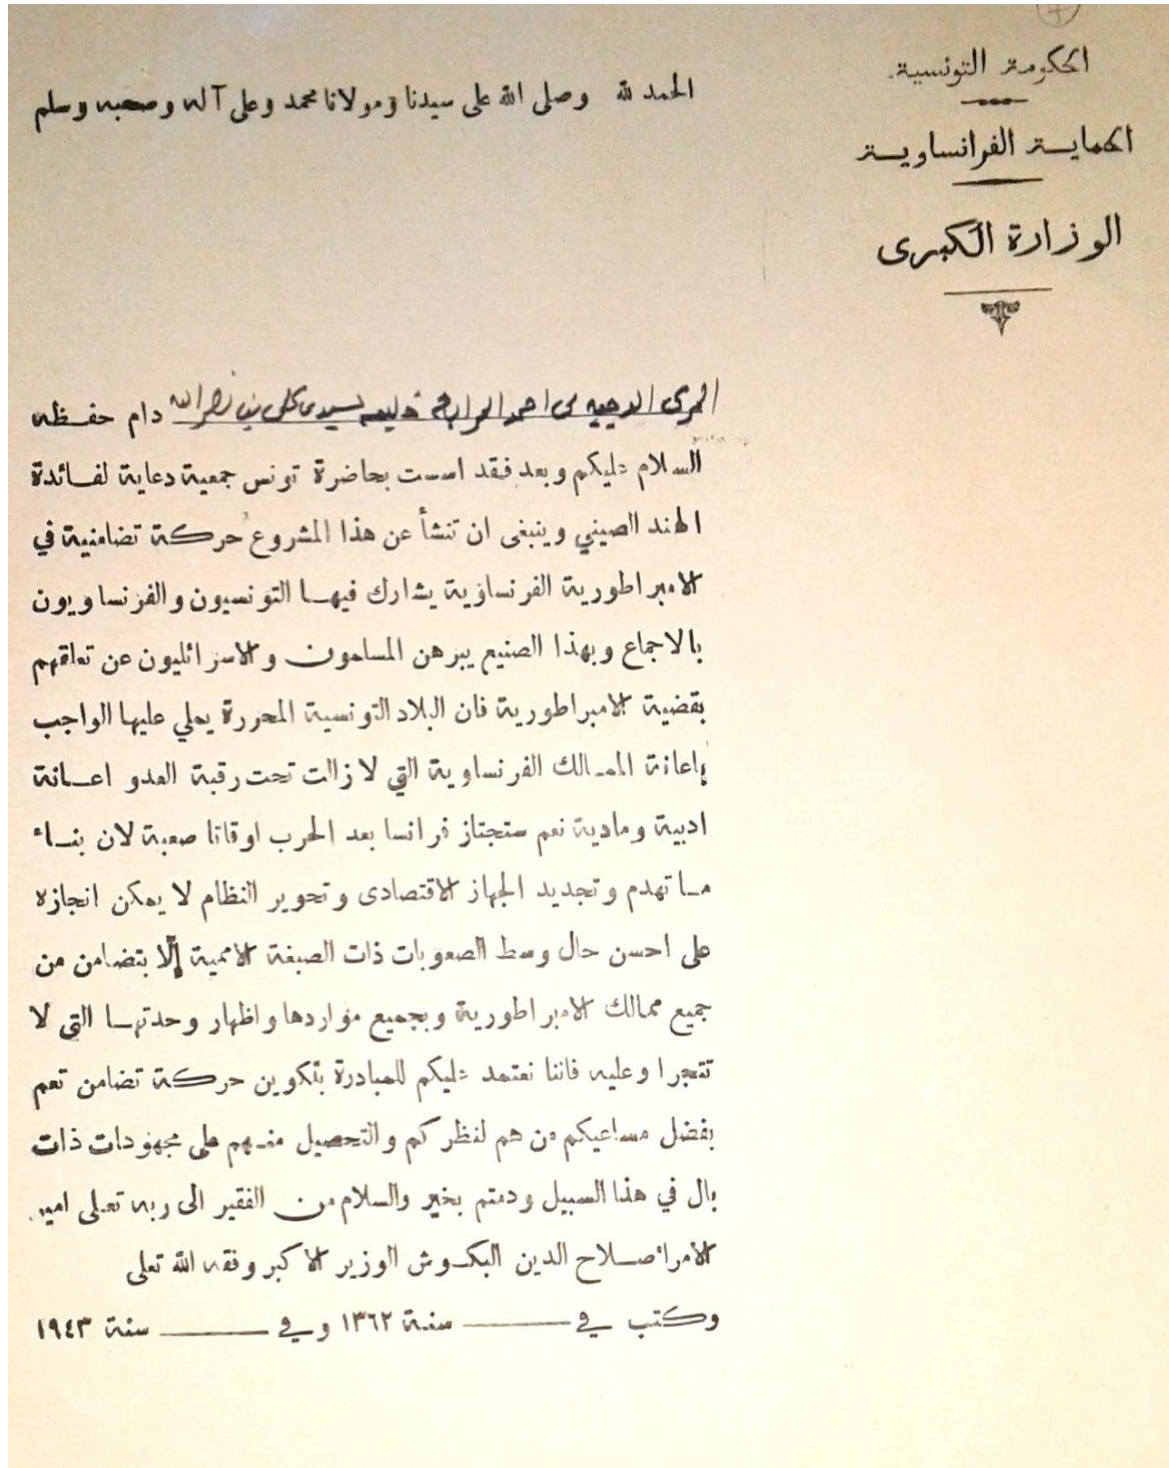 الحكومة التونسية
الحماية الفرانساوية
الوزارة الكبرى
الحمد لله وصلى الله على سيدنا ومولانا محمد وعلى آله وصحبه وسلم
الوجيه احمد نصر الله دام حفظه
السلام عليكم وبعد فقد اسست بحاضرة تونس جمعية دعاية لفائدة
الهند الصيني وينبغى ان تنشأ عن هذا المشروع حركة تضامنية في
الامبراطورية الفرنساوية يشارك فيها التونسيون والفرنساويون
بالاجماع وبهذا الصنيع يبرهن المسلمون والاسرائليون عن تعلقهم
بقضية الامبراطورية فان البلاد التونسية المحررة يملي عليها الواجب
باعانة الممالك الفرنساوية التي لا زالت تحت رقبة العدو اعانة
ادبية ومادية نعم ستجتاز فرانسا بعد الحرب اوقاتا صعبة لان بناء
ما تهدم وتجديد الجهاز الاقتصادى وتحوير النظام لا يمكن انجازه
على احسن حال وسط الصعوبات ذات الصبغة الاممية إلا بتضامن من
جميع ممالك الامبراطورية وبجميع مواردها واظهار وحدتها التي لا
تتجزا وعليه فاننا نعتمد عليكم للمبادرة بتكوين حركة تضامن تعم
بفضل مساعيكم من هم لنظركم والتحصيل منهم على مجهودات ذات
بال في هذا السبيل ودمتم بخير والسلام من الفقير الى ربه تعلى امير
الامرا صلاح الدين البكوش الوزير الاكبر وفقه الله تعلى
وكتب في ــــــ سنة ١٣٦٢ وفي ــــــ سنة ١٩٤٣